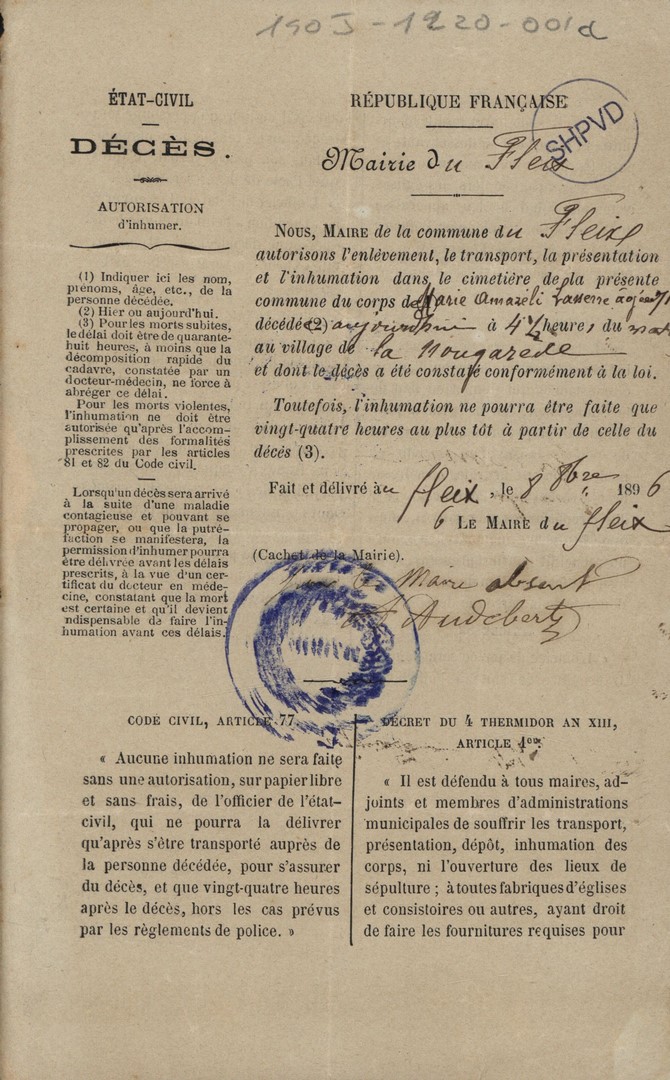 1905-1220-001a
ÉTAT-CIVIL
DÉCÈS.
AUTORISATION
d'inhumer.
(1) Indiquer ici les nom,
prénoms, âge, etc., de la
personne décédée.
(2) Hier ou aujourd'hui.
(3) Pour les morts subites,
le délai doit être de quarante-
huit heures, à moins que la
décomposition rapide du
cadavre, constatée par un
docteur-médecin, ne force à
abréger ce délai.
Pour les morts violentes,
l'inhumation ne doit être
autorisée qu'après l'accom-
plissement des formalités
prescrites par les articles
81 et 82 du Code civil.
Lorsqu'un décès sera arrivé
à la suite d'une maladie
contagieuse et pouvant se
propager, ou que la putré-
faction se manifestera, la
permission d'inhumer pourra
être délivrée avant les délais
prescrits, à la vue d'un cer-
tificat du docteur en méde-
cine, constatant que la mort
est certaine et qu'il devient
indispensable de faire l'in-
humation avant ces délais.
RÉPUBLIQUE FRANÇAISE
SHPVD
Mairie du Fleix
NOUS, MAIRE de la commune du Fleix
autorisons l'enlèvement, le transport, la présentation
et l'inhumation dans le cimetière de la présente
commune du corps de Marie Lasserre agée 71
décédée (2) aujourdhui à 4 1/2 heures du
au village de la nougarede
et dont le décès a été constaté conformément à la loi.
Toutefois, l'inhumation ne pourra être faite que
vingt-quatre heures au plus tôt à partir de celle du
décés (3).
Fait et délivré au fleix, le 8 8bre 1896
6 LE MAIRE du fleix
(Cachet de la Mairie).
Maire absent
Audebert
MAIRIE
CODE CIVIL, ARTICLE 77
« Aucune inhumation ne sera faite
sans une autorisation, sur papier libre
et sans frais, de l'officier de l'état-
civil, qui ne pourra la délivrer
qu'après s'être transporté auprès de
la personne décédée, pour s'assurer
du décès, et que vingt-quatre heures
après le décès, hors les cas prévus
par les règlements de police. »
DÉCRET DU 4 THERMIDOR AN XIII,
ARTICLE 1er.
« Il est défendu à tous maires, ad-
joints et membres d'administrations
municipales de souffrir les transport,
présentation, dépôt, inhumation des
corps, ni l'ouverture des lieux de
sépulture ; à toutes fabriques d'églises
et consistoires ou autres, ayant droit
de faire les fournitures requises pour